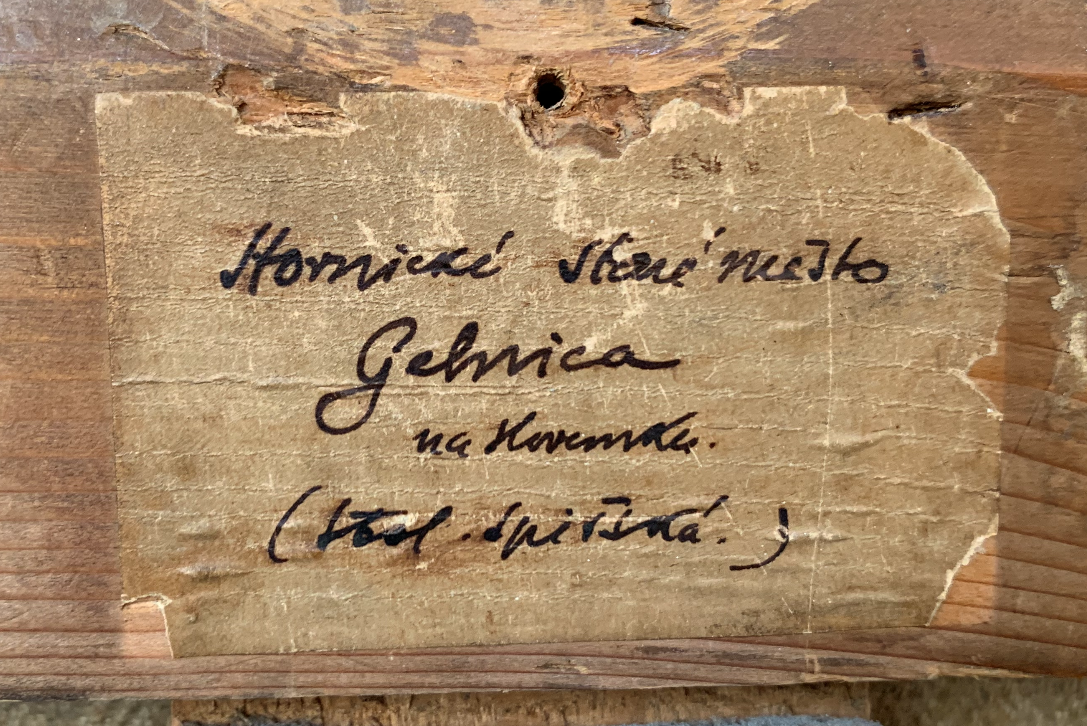 Hornické staré město
Gelnica
na Slovensku.
(stol. spišská.)